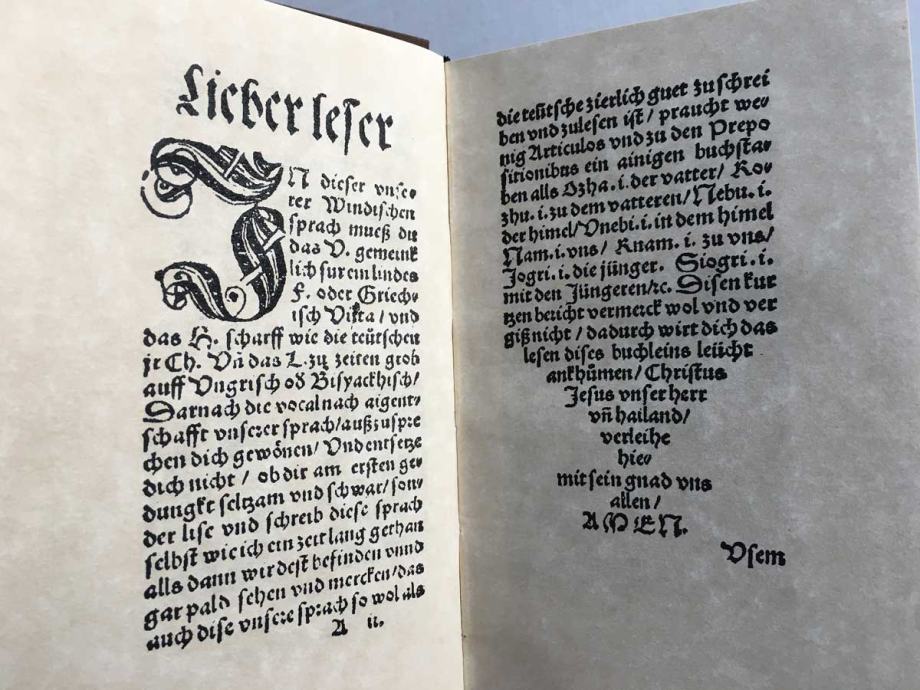 Lieber leser
IN dieser vnse⸗
rer Windischen
sprach mueß du
das V. gemeink
lich fur ein lindes
f. oder Griech⸗
isch Vita / vnd
das H. scharff wie die teütschen
jr Ch. Vn̄ das L. zů zeiten grob
auff Vngrisch od Bisyackhisch /
Darnach die vocal nach aigent⸗
schafft vnserer sprach / außzuspre
chen dich gewönen / Vnd entsetze
dich nicht / ob dir am ersten ge⸗
dungkt seltzam vnd schwar / son⸗
der lise vnd schreib diese sprach
selbst wie ich ein zeit lang gethan
alls dann wirdest befinden vnnd
gar pald sehen vnd mercken / das
auch dise vnsere sprach so wol als
A ii.
die teütsche zierlich guet zu schrei
ben vnd zulesen ist / praucht we⸗
nig Articulos vnd zu den Prepo
sitionibus ein ainigen buchsta⸗
ben alls Ozha. i. der vatter / Ko⸗
zhu. i. zu dem vatteren / Nebu. i.
der himel / Vnebi. i. in dem himel
Nam. i. vns / Knam. i. zu vns /
Jogri. i. die jünger. Siogri. i.
mit den Jüngeren / ꝛc. Disen kur
tzen bericht vermerck wol vnd ver
giß nicht / dadurch wirt dich das
lesen dises buchleins leücht
ankhům̃en / Christus
Jesus vnser herr
vn̄ hailand /
verleihe
hie⸗
mit sein gnad vns
allen /
AMEN.
Vsem